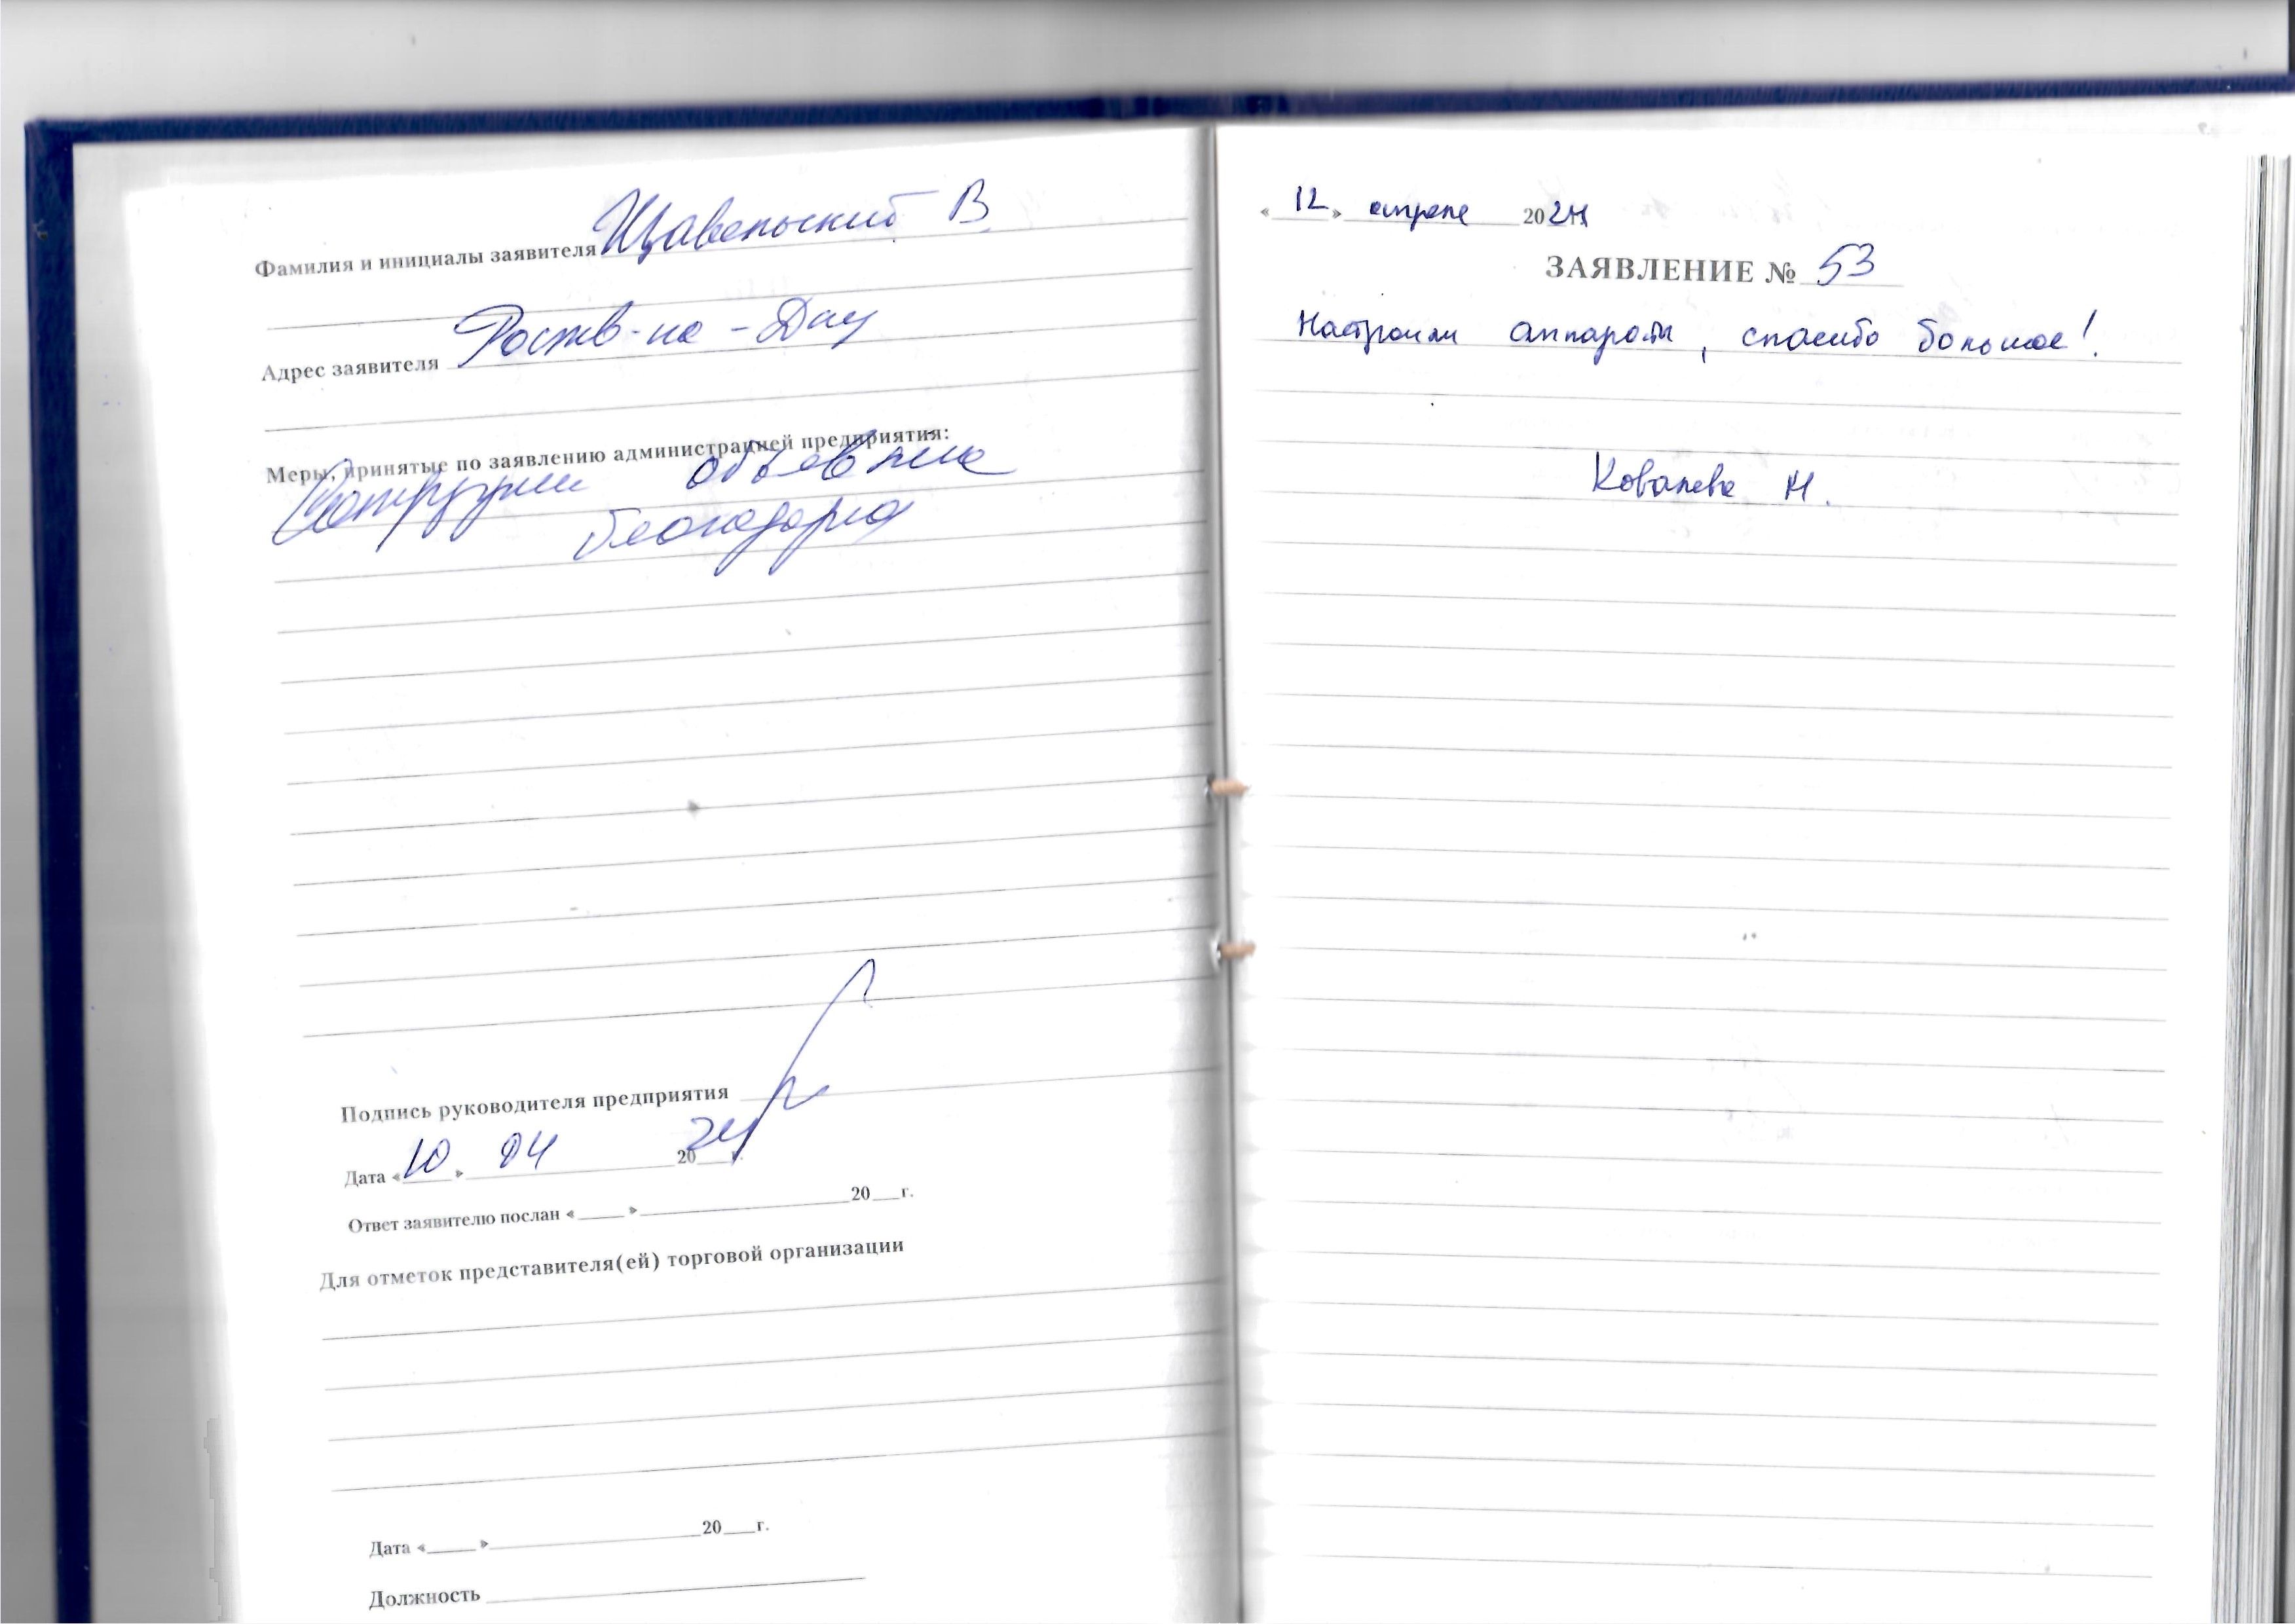 Фамилия и инициалы заявителя Щавельский В.
Адрес заявителя Ростов-на-Дону
Меры, принятые по заявлению администрацией предприятия:
объявлена
Подпись руководителя предприятия
Дата «10» 04 2024 г.
Ответ заявителю послан «____» 20___г.
Для отметок представителя(ей) торговой организации
Дата «____» 20___г.
Должность
«12» апреля 2024
ЗАЯВЛЕНИЕ № 53
Настроили аппараты, спасибо большое!
Ковалева Н.